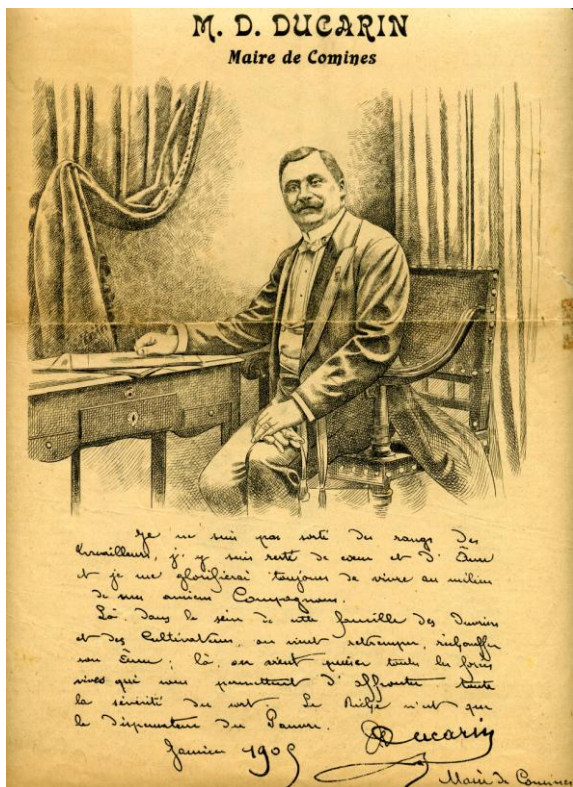 M. D. DUCARIN
Maire de Comines
Je ne suis pas sorti des rangs des
travailleurs, j'y suis resté de cœur et d'Âme
et je me glorifierai toujours de vivre au milieu
de mes anciens Compagnons.
Là, dans le sein de cette famille des Ouvriers
et des Cultivateurs, on vient retremper, réchauffer
son Âme; là, on vient puiser toutes les forces
vives qui vous permettent d'affronter toute
la sévérité du sort. Le Riche n'est que
le dispensateur du Pauvre.
Janvier 190
Ducarin
Maire de Comines